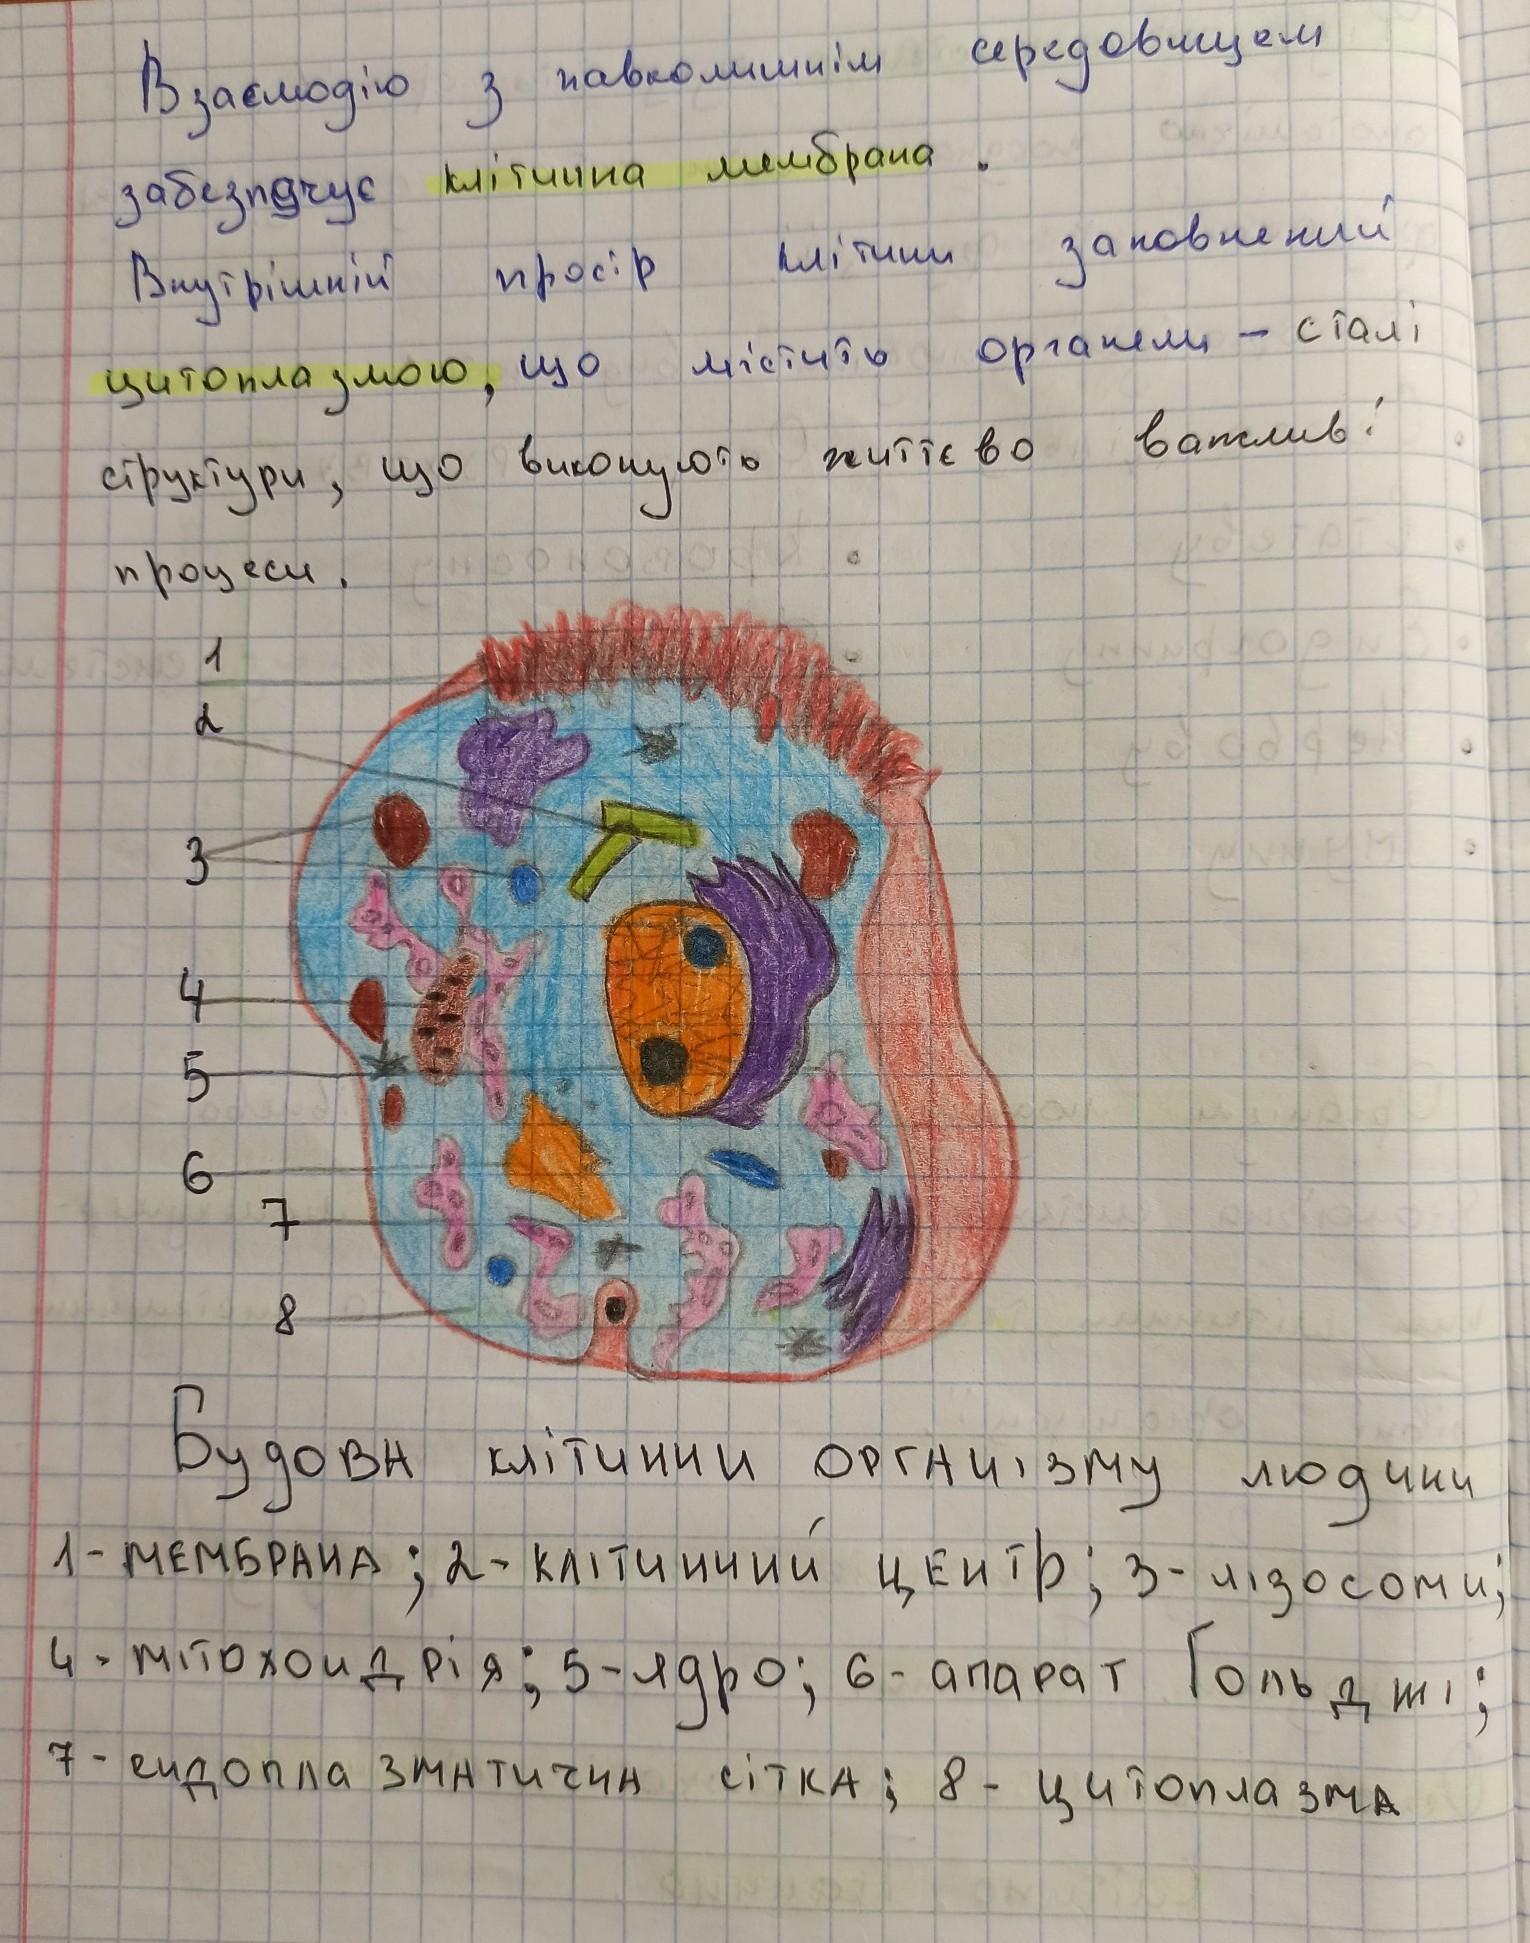 Взаємодію з навколишнім середовищем
забезпечує клітинна мембрана.
Внутрішній простір клітини заповнений
цитоплазмою, що містить органели – сталі
структури, що виконують життєво важливі
процеси.
1
2
3
4
5
6
7
8
Будова клітинни організму людини
1- мембрана; 2- клітинний центр; 3- лізосоми;
4- мітохондрія; 5- ядро; 6- апарат Гольджі;
7- ендоплазматична сітка; 8- цитоплазма